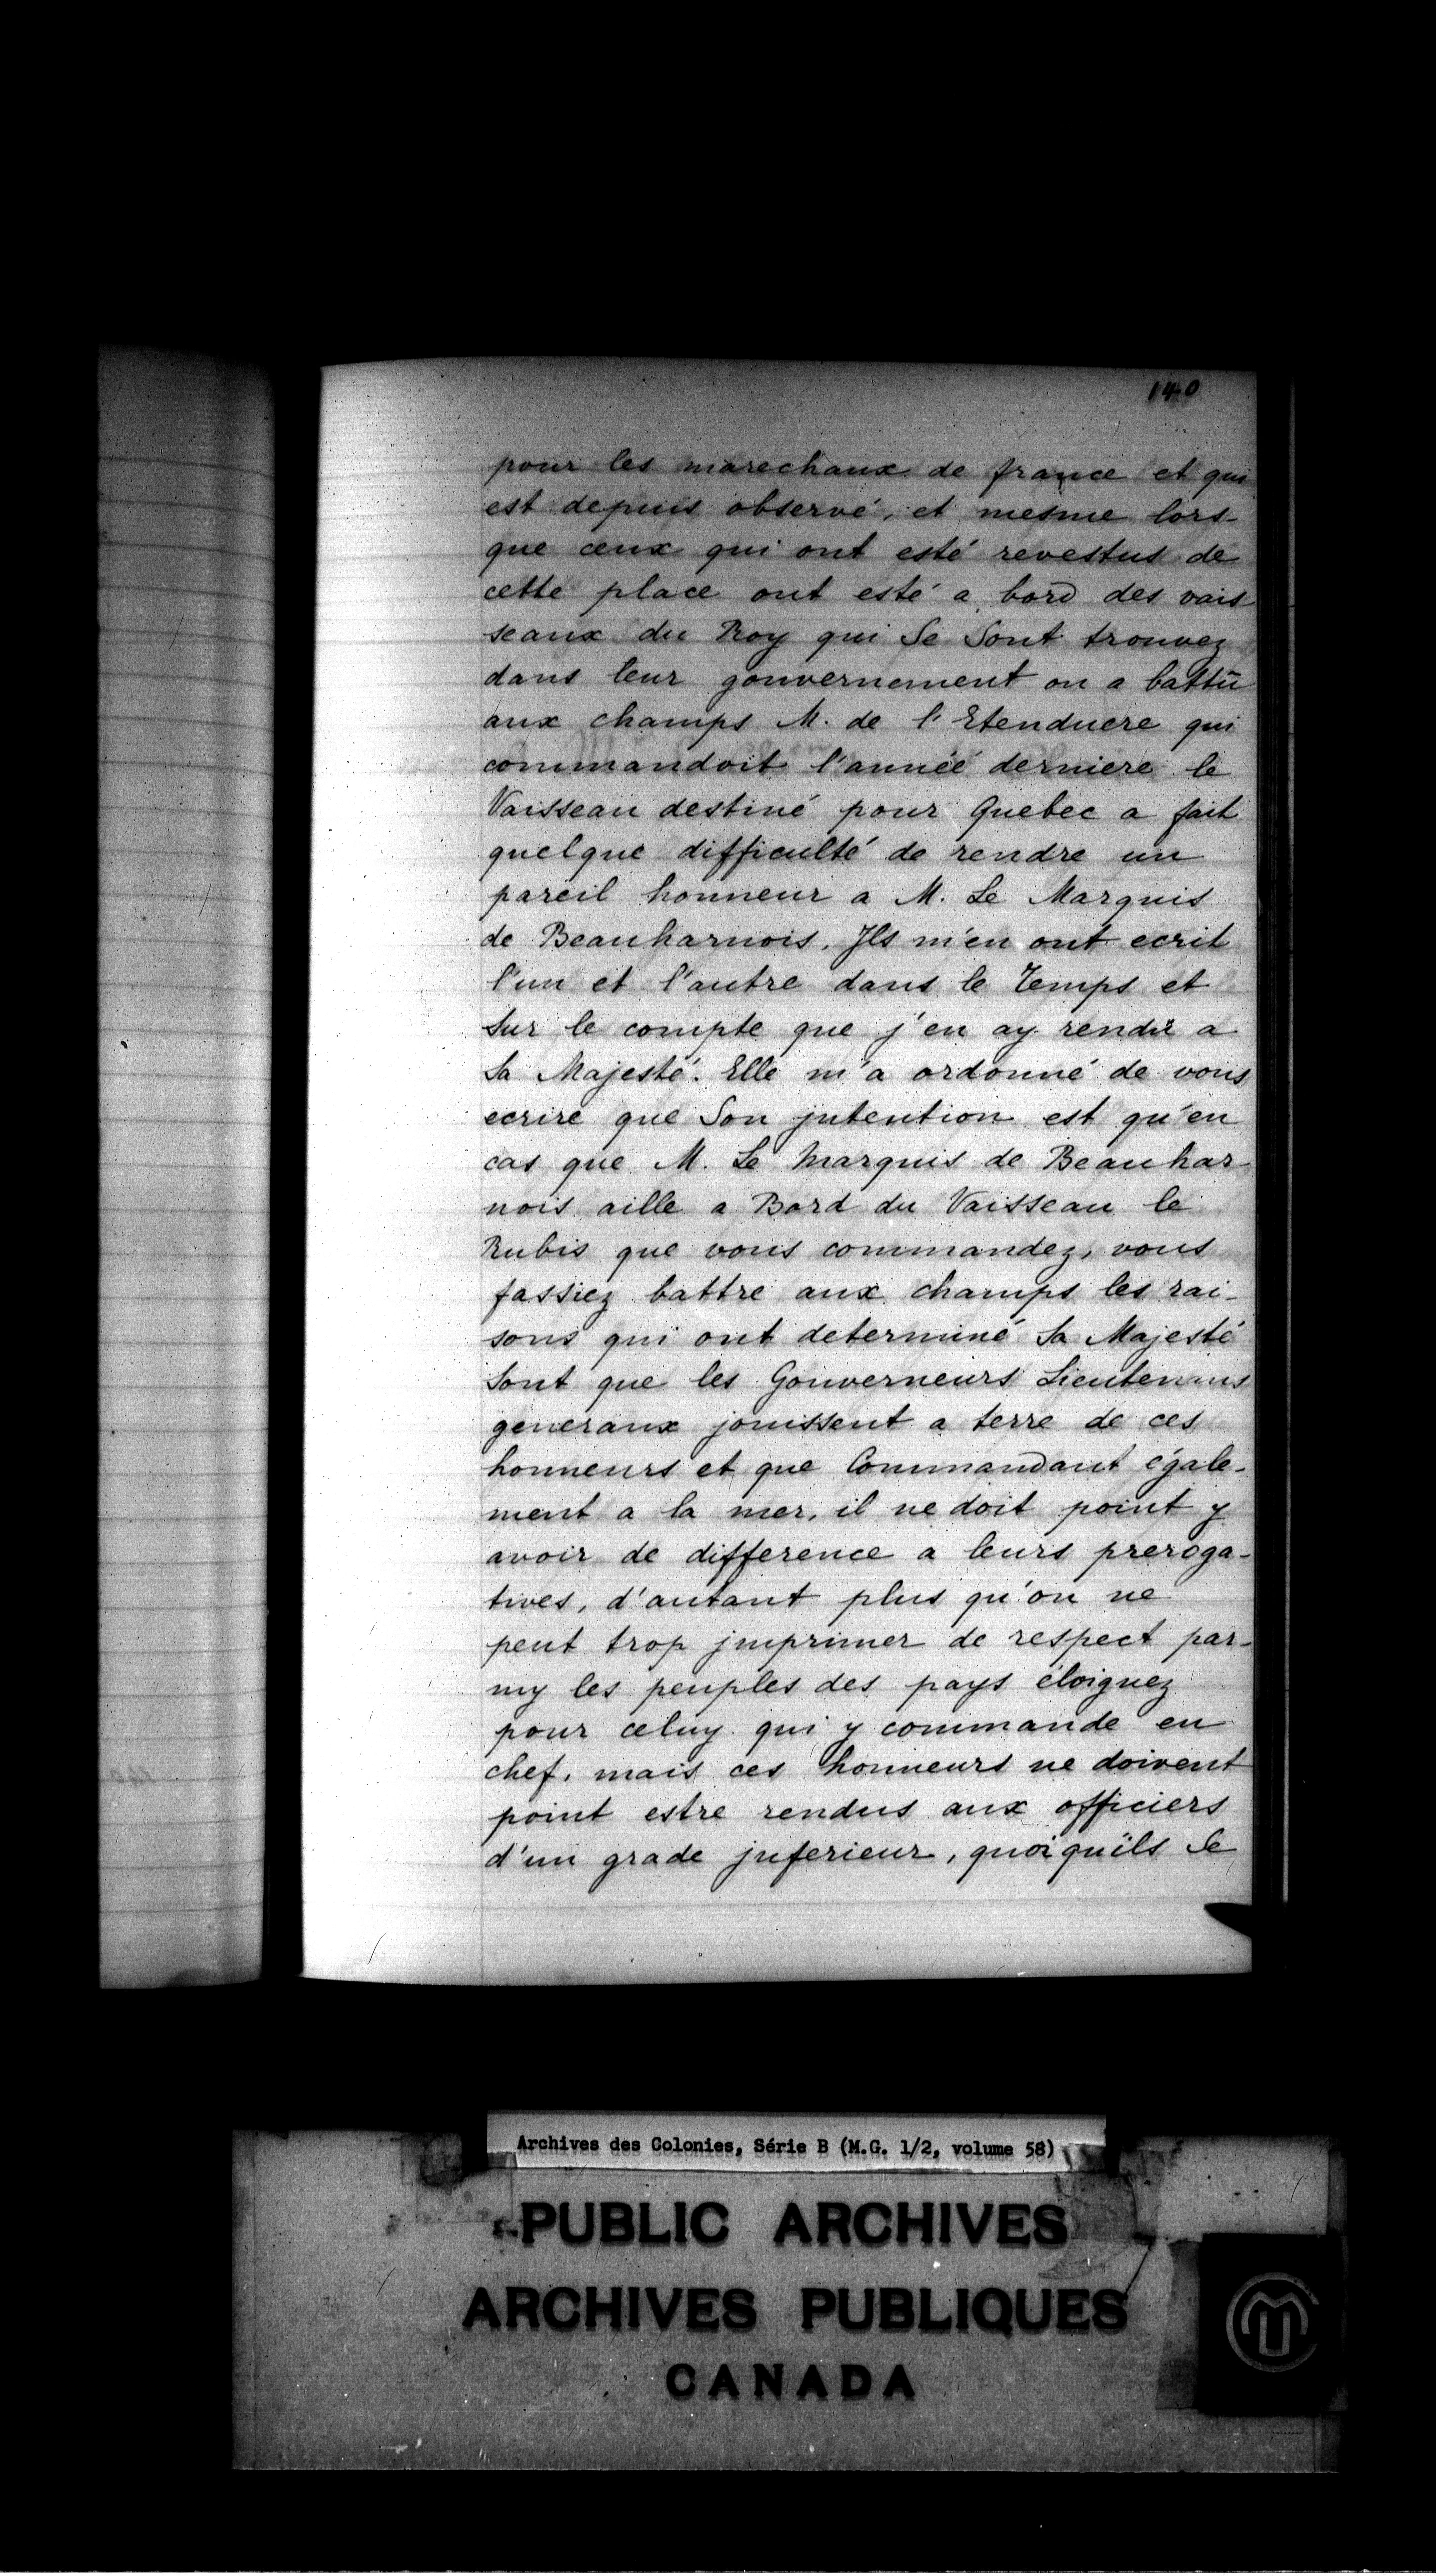 140
pour les marechaux de france et qui
est depuis observé, et mesme lors-
que ceux qui ont esté revestus de
cette place ont esté a bord des vais-
seaux du Roy qui Se Sont trouvez
dans leur gouvernement on a battü
aux champs M. de l'Etenduere qui
commandoit l'année derniere le
Vaisseau destiné pour Quebec a fait
quelque difficulté de rendre un
pareil honneur a M. Le Marquis
de Beauharnois. Jls m'en ont ecrit
l'un et l'autre dans le Temps et
Sur le compte que j'en ay rendü a
Sa Majesté. Elle m'a ordonné de vous
ecrire que Son jntention est qu'en
cas que M. Le Marquis de Beauhar-
nois aille a Bord du Vaisseau le
Rubis que vous commandez, vous
fassiez battre aux champs les rai-
sons qui ont determiné Sa Majesté
Sont que les Gouverneurs Lieutenans
generaux jouissent a terre de ces
honneurs et que Commandant égale-
ment a la mer, il ne doit point y
avoir de difference a leurs preroga-
tives, d'autant plus qu'on ne
peut trop jmprimer de respect par-
my les peuples des pays éloignez
pour celuy qui y commande en
chef, mais ces honneurs ne doivent
point estre rendus aux officiers
d'un grade jnferieur, quoiqu'ils Se
Archives des Colonies, Série B (M.G. 1/2, volume 58)
PUBLIC ARCHIVES
ARCHIVES PUBLIQUES
CANADA